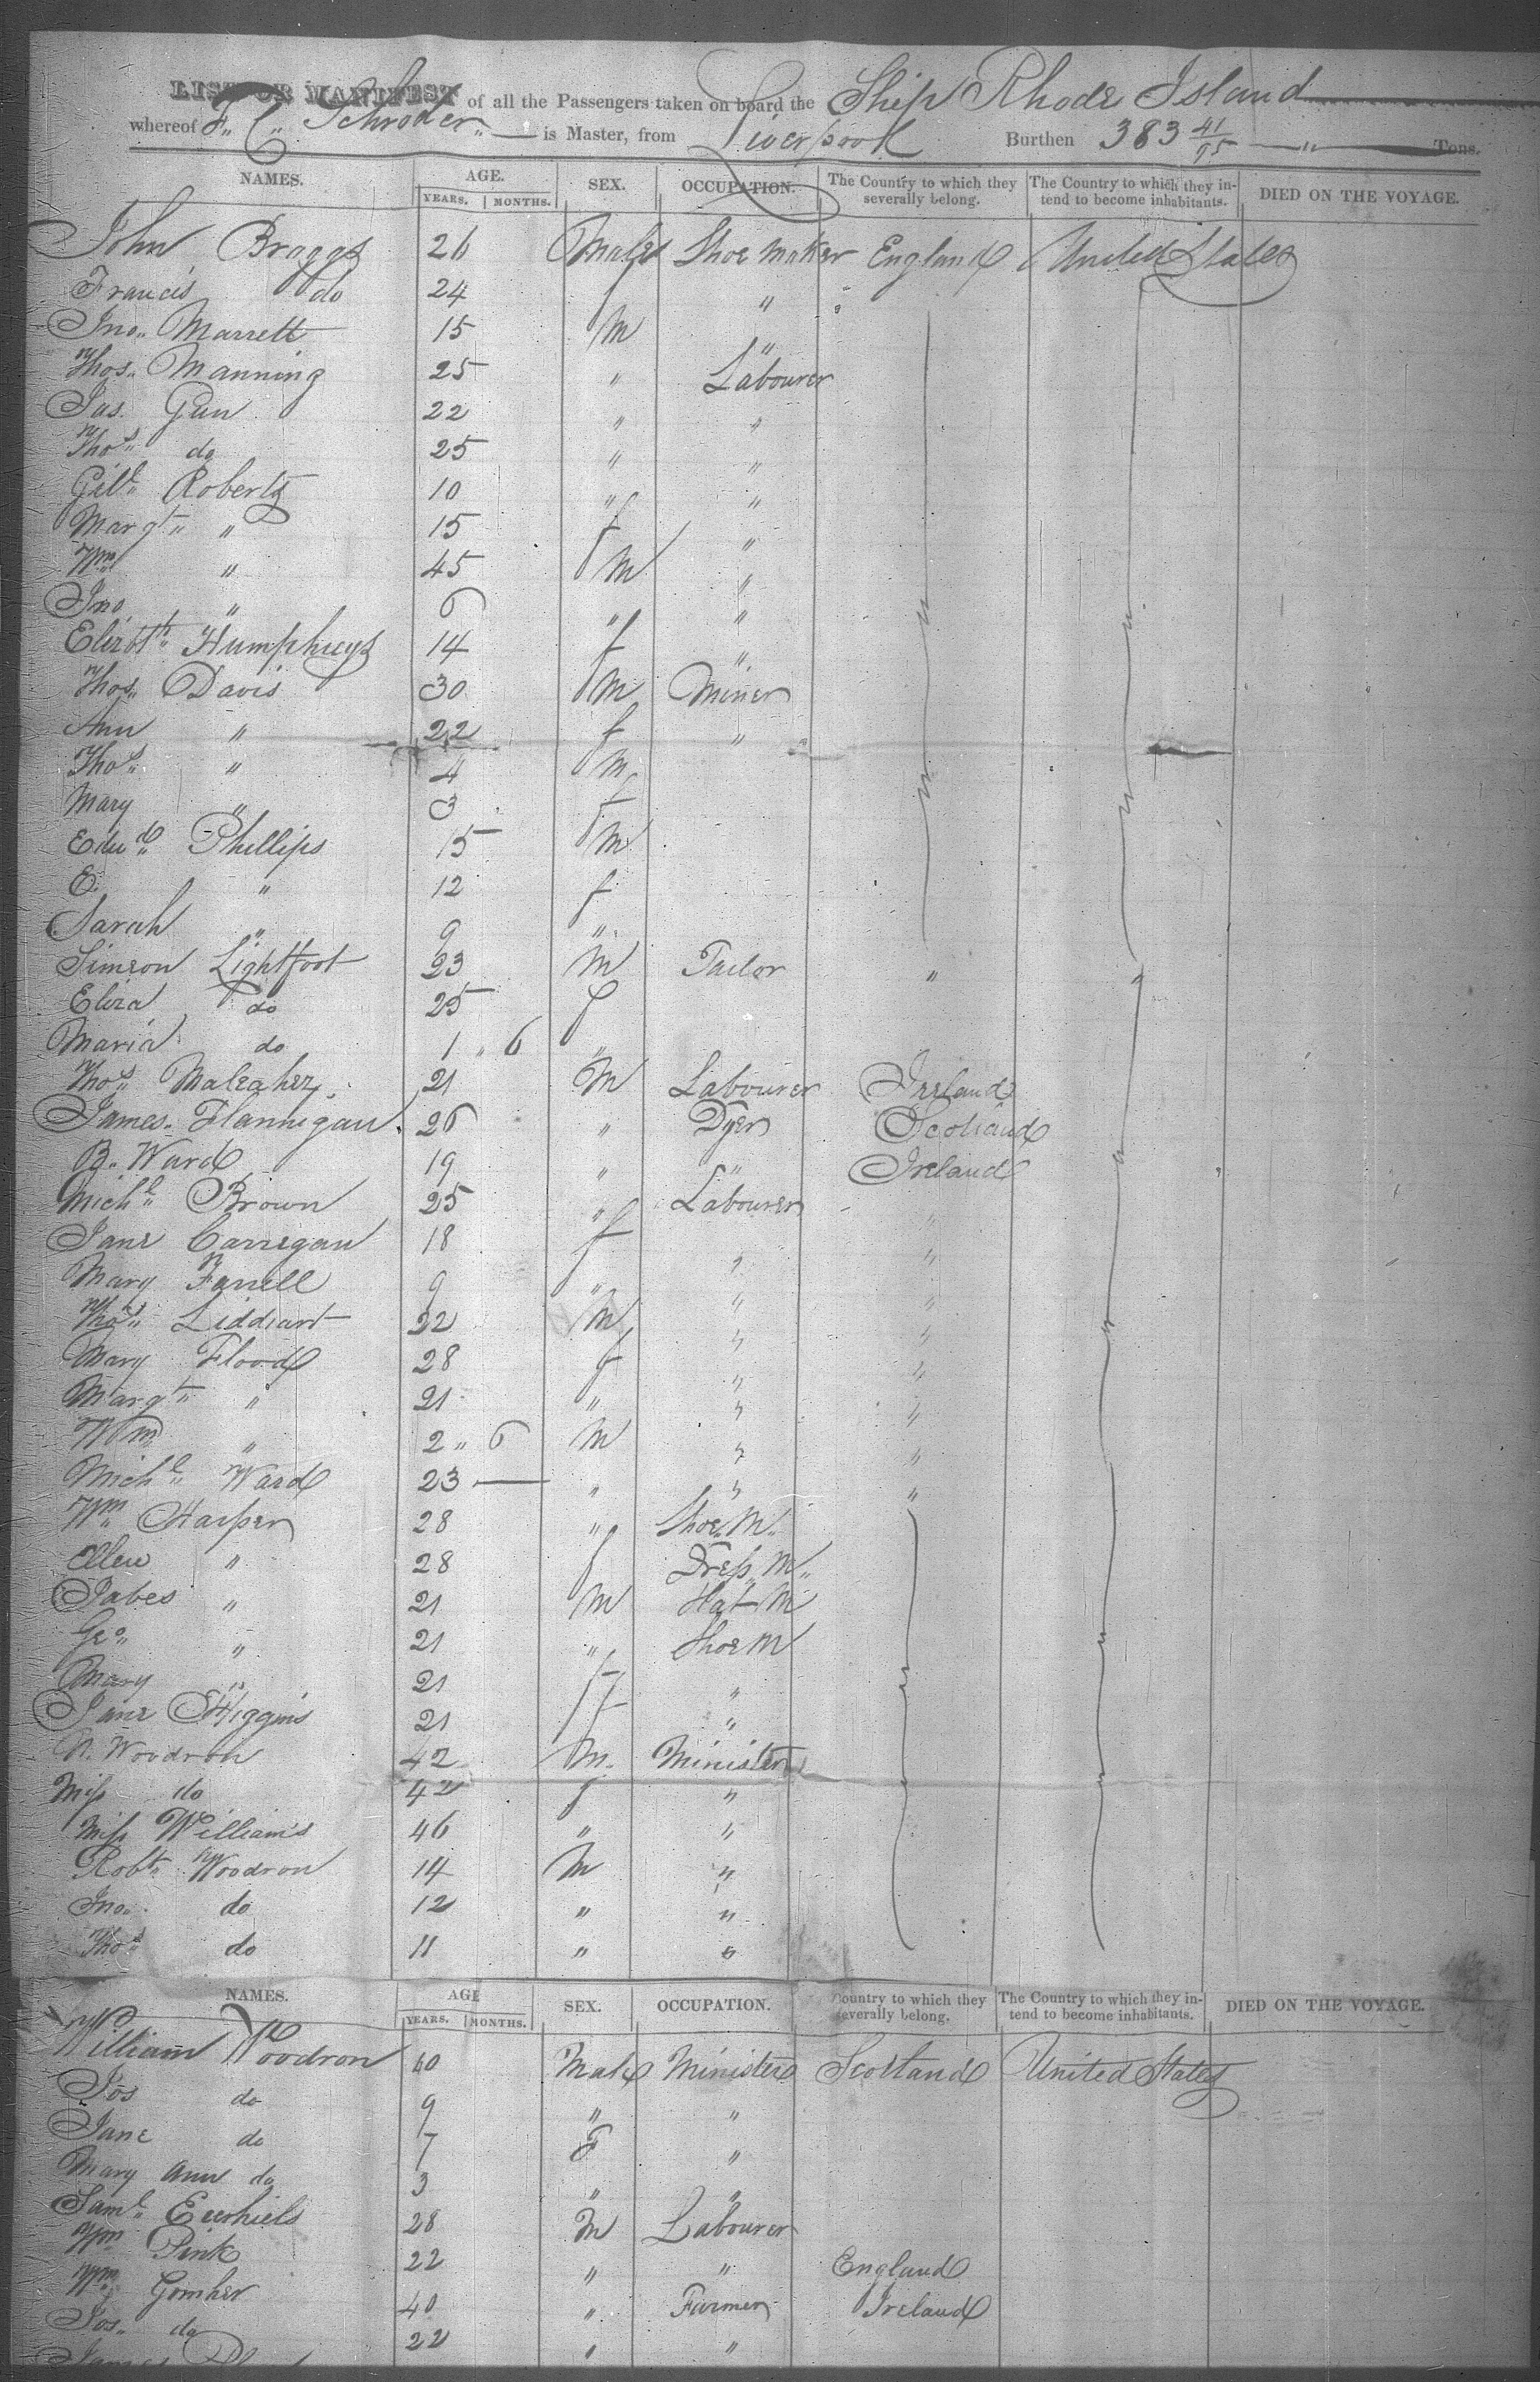 LIST OR MANIFEST of all the Passengers taken on board the Ship Rhode Island
whereof F. C. Schroder is Master, from Liverpool Burthen 383 41/95 Tons.
NAMES. AGE. YEARS. MONTHS. SEX. OCCUPATION. The Country to which they severally belong. The Country to which they intend to become inhabitants. DIED ON THE VOYAGE.
John Braggs 26 Males Shoe maker England United States
Francis do 24 " "
Jno. Marrett 15 M "
Thos. Manning 25 " Labourer
Jas. Gun 22 " "
Thos. do 25 " "
Gilt. Roberts 10 " "
Margt. " 15 f "
Wm " 45 M "
Jno " 6 " "
Elizbth. Humphreys 14 f "
Thos. Davis 30 M Miner
Ann " 22 f "
Thos. " 4 M
Mary " 3 f
Edwd. Phillips 15 M
E. " 12 f
Sarah " 9 "
Simeon Lightfoot 23 M Tailor " "
Eliza do 25 f
Maria do 1 " 6 "
Thos. 21 M Labourer Ireland
James Flannigan 26 " Dyer Scotland
B. Ward 19 " " Ireland
Michl. Brown 25 " Labourer "
Jane Carregan 18 f " "
Mary Farrell 9 " " "
Thos. Liddiart 22 M " "
Mary Flood 28 f " "
Margt. " 21 " " "
Wm " 2 " 6 M " "
Michl. Ward 23 — " " "
Wm. Harper 28 " Shoe M.
Ellen " 28 f Dress M.
Jabes " 21 M Hat M
Geo. " 21 " Shoe M
Mary " 21 f "
Jane Higgins 21 f "
N. Woodron 42 M. Minister
Miss do 42 f "
Miss Williams 46 " "
Robt. Woodron 14 M "
Jno. do 12 " "
Thos. do 11 " "
NAMES. AGE YEARS. MONTHS. SEX. OCCUPATION. Country to which they severally belong. The Country to which they intend to become inhabitants. DIED ON THE VOYAGE.
William Woodron 60 Male Minister Scotland United States
Jos do 9 " "
Jane do 7 F "
Mary Ann do 3 " "
Saml. 28 M Labourer
Wm Pink 22 " " England
Wm Gomher 40 " Farmer Ireland
Jos. do 22 " "
James